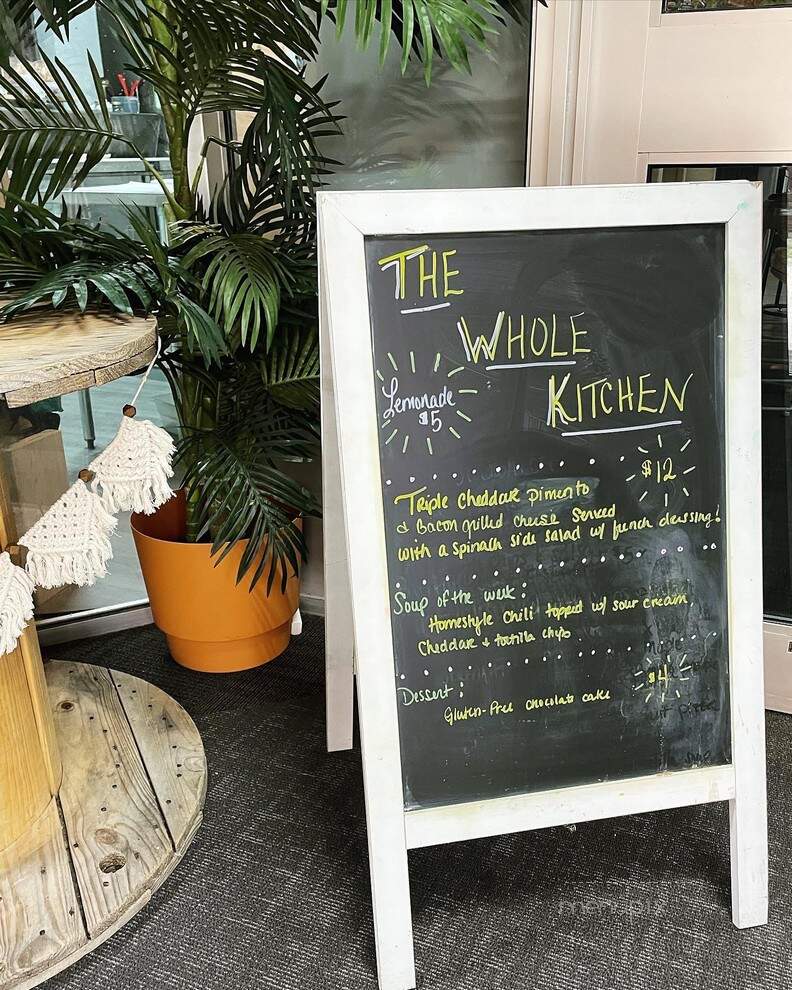 THE
WHOLE
KITCHEN
Lemonade
$5
$12
Triple Cheddar Pimento
& Bacon grilled cheese served
with a spinach side salad w/ french dressing!
Soup of the week:
Homestyle Chili topped w/ sour cream,
Cheddar + tortilla chips
$4
Dessert:
Gluten-Free chocolate cake
menupix